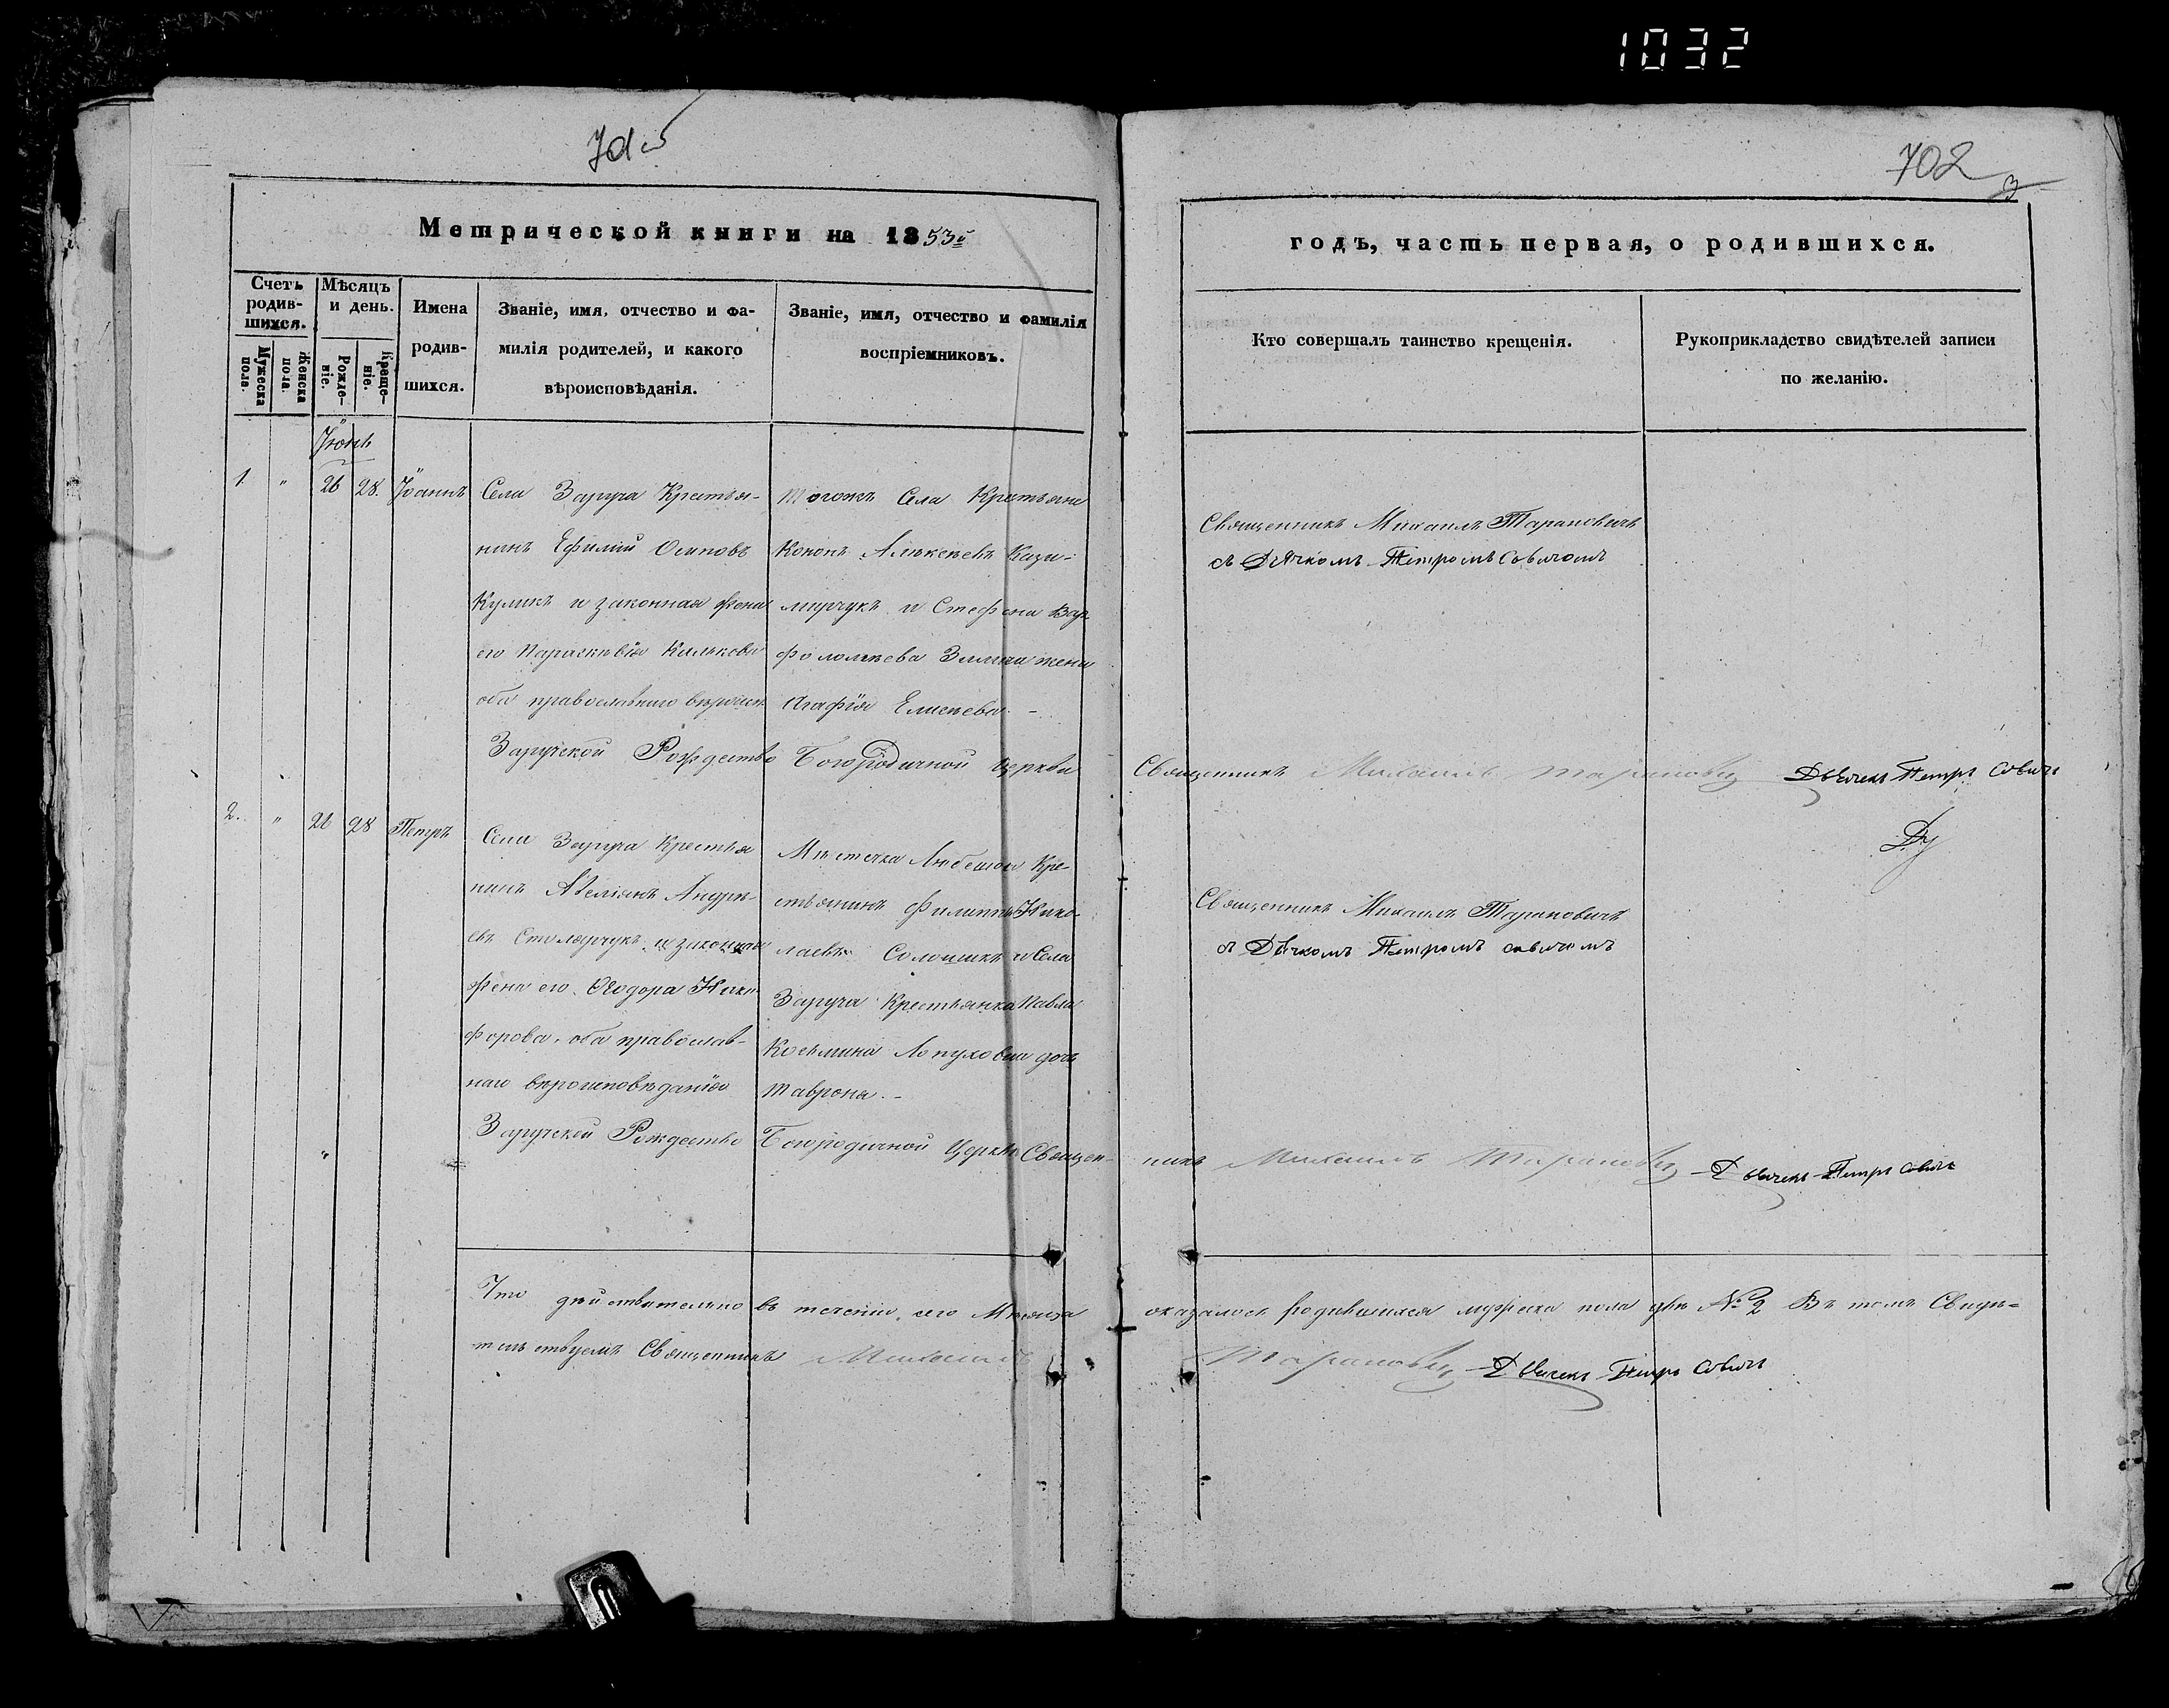 1032
702
Метрической книги на 1853й
годъ, часть первая, о родившихся.
Счетъ родив-шихся.
Мужеска пола.
Женска пола.
Мѣсяцъ и день.
Рожде-ніе.
Креще-ніе.
Имена
родив-
шихся.
Званіе, имя, отчество и фа-
милія родителей, и какого
вѣроисповѣданія.
Званіе, имя, отчество и фамилія
воспріемниковъ.
Кто совершалъ таинство крещенія.
Рукоприкладство свидѣтелей записи
по желанію.
Іюнь
1. " 26 28. Іоаннъ
Села Заруча Крестья-
нинъ Ефимій Осиповъ
Куликъ и законная жена
его Параскевія
оба православнаго вѣроисп.
тогожъ Села Крестьяне
Кононъ Алексѣевъ Кази-
мирчукъ и Стефана Вар-
фоломѣева жена
Агафія Елисѣева. -
Священникъ Михаилъ Тарановичъ
съ Дячкомъ Петромъ Савичомъ
Заручской Рождество Богородичной Церкви Священникъ Михаилъ Тарановичъ Дьячекъ Петръ Савичъ
2. " 26 28 Петръ
Села Заруча Крестья
нинъ Андрѣ-
евъ Столярчукъ и законная
жена его Ѳеодора Ники-
форова, оба православ-
наго вѣроисповѣданія
Мѣстечка Любешова Кре-
стьянинъ Филиппъ Нико-
лаевъ и Села
Заруча Крестьянка Павла
Косьмина дочь
Маврона. -
Священникъ Михаилъ Тарановичъ
съ Дьячкомъ Петромъ Савичомъ
Заручской Рождество Богородичной Церкви Священ-никъ Михаилъ Тарановичъ Дьячекъ Петръ Савичъ
Что дѣйствительно въ теченіи сего Мѣсяца оказалось родившихся мужеска пола два № 2 Въ томъ Свидѣ-
тельствуемъ Священникъ Михаилъ Тарановичъ Дьячекъ Петръ Савичъ